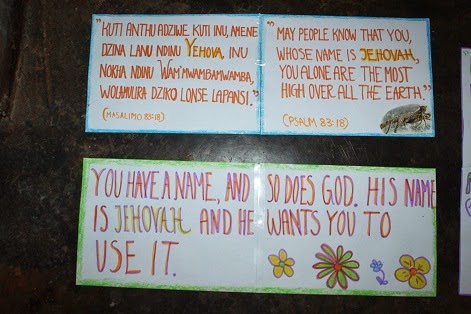 "KUTI ANTHU ADZIWE KUTI INU, AMENE
DZINA LANU NDINU YEHOVA, INU
NOKHA NDINU WAM'MWAMBAMWAMBA,
WOLAMULIRA DZIKO LONSE LAPANSI."
(MASALIMO 83:18)
"MAY PEOPLE KNOW THAT YOU,
WHOSE NAME IS JEHOVAH,
YOU ALONE ARE THE MOST
HIGH OVER ALL THE EARTH"
(PSALM 83:18)
YOU HAVE A NAME, AND SO DOES GOD. HIS NAME
IS JEHOVAH AND HE WANTS YOU TO
USE IT.